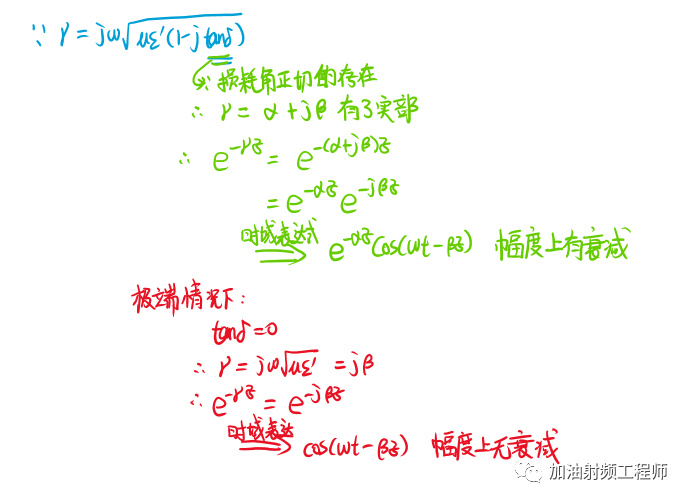 ∵ γ = jω√με′(1-jtanδ)
∵ 损耗角正切的存在
∴ γ = α+jβ 有了实部
∴ e^-γz = e^-(α+jβ)z
= e^-αz e^-jβz
时域表达式 ⇒ e^-αz cos(ωt-βz) 幅度上有衰减
极端情况下:
tanδ=0
∴ γ = jω√με′ = jβ
∴ e^-γz = e^-jβz
时域表达 ⇒ cos(ωt-βz) 幅度上无衰减
加油射频工程师